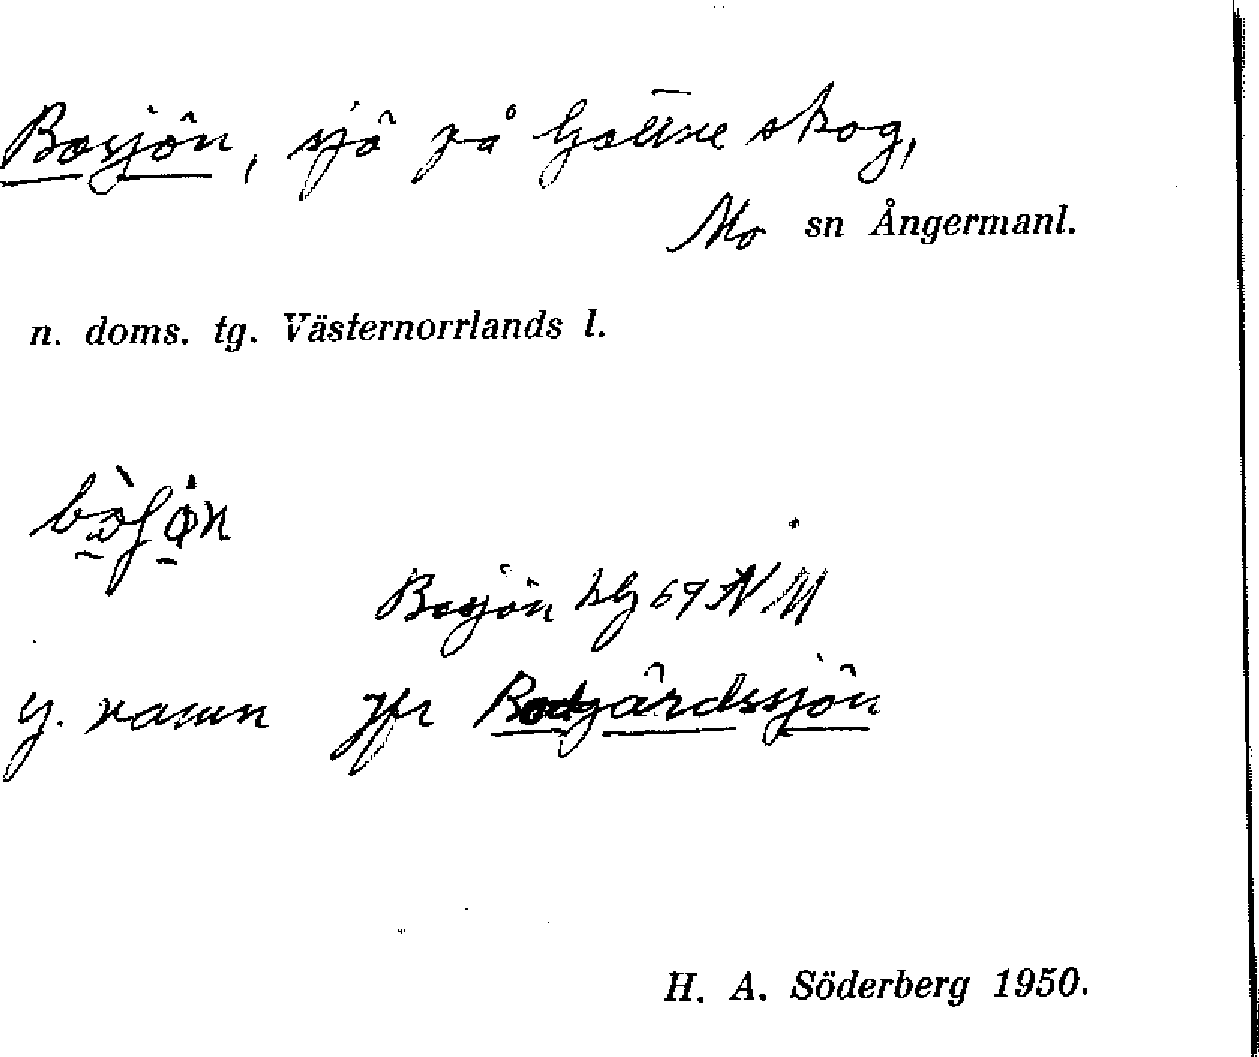 Bosjön, sjö på Gottne skog,
Mo sn Ångermanl.
n. doms. tg. Västernorrlands l.
Bosjön 69 NV
y. namn Jfr Bodgårdssjön
H. A. Söderberg 1950.